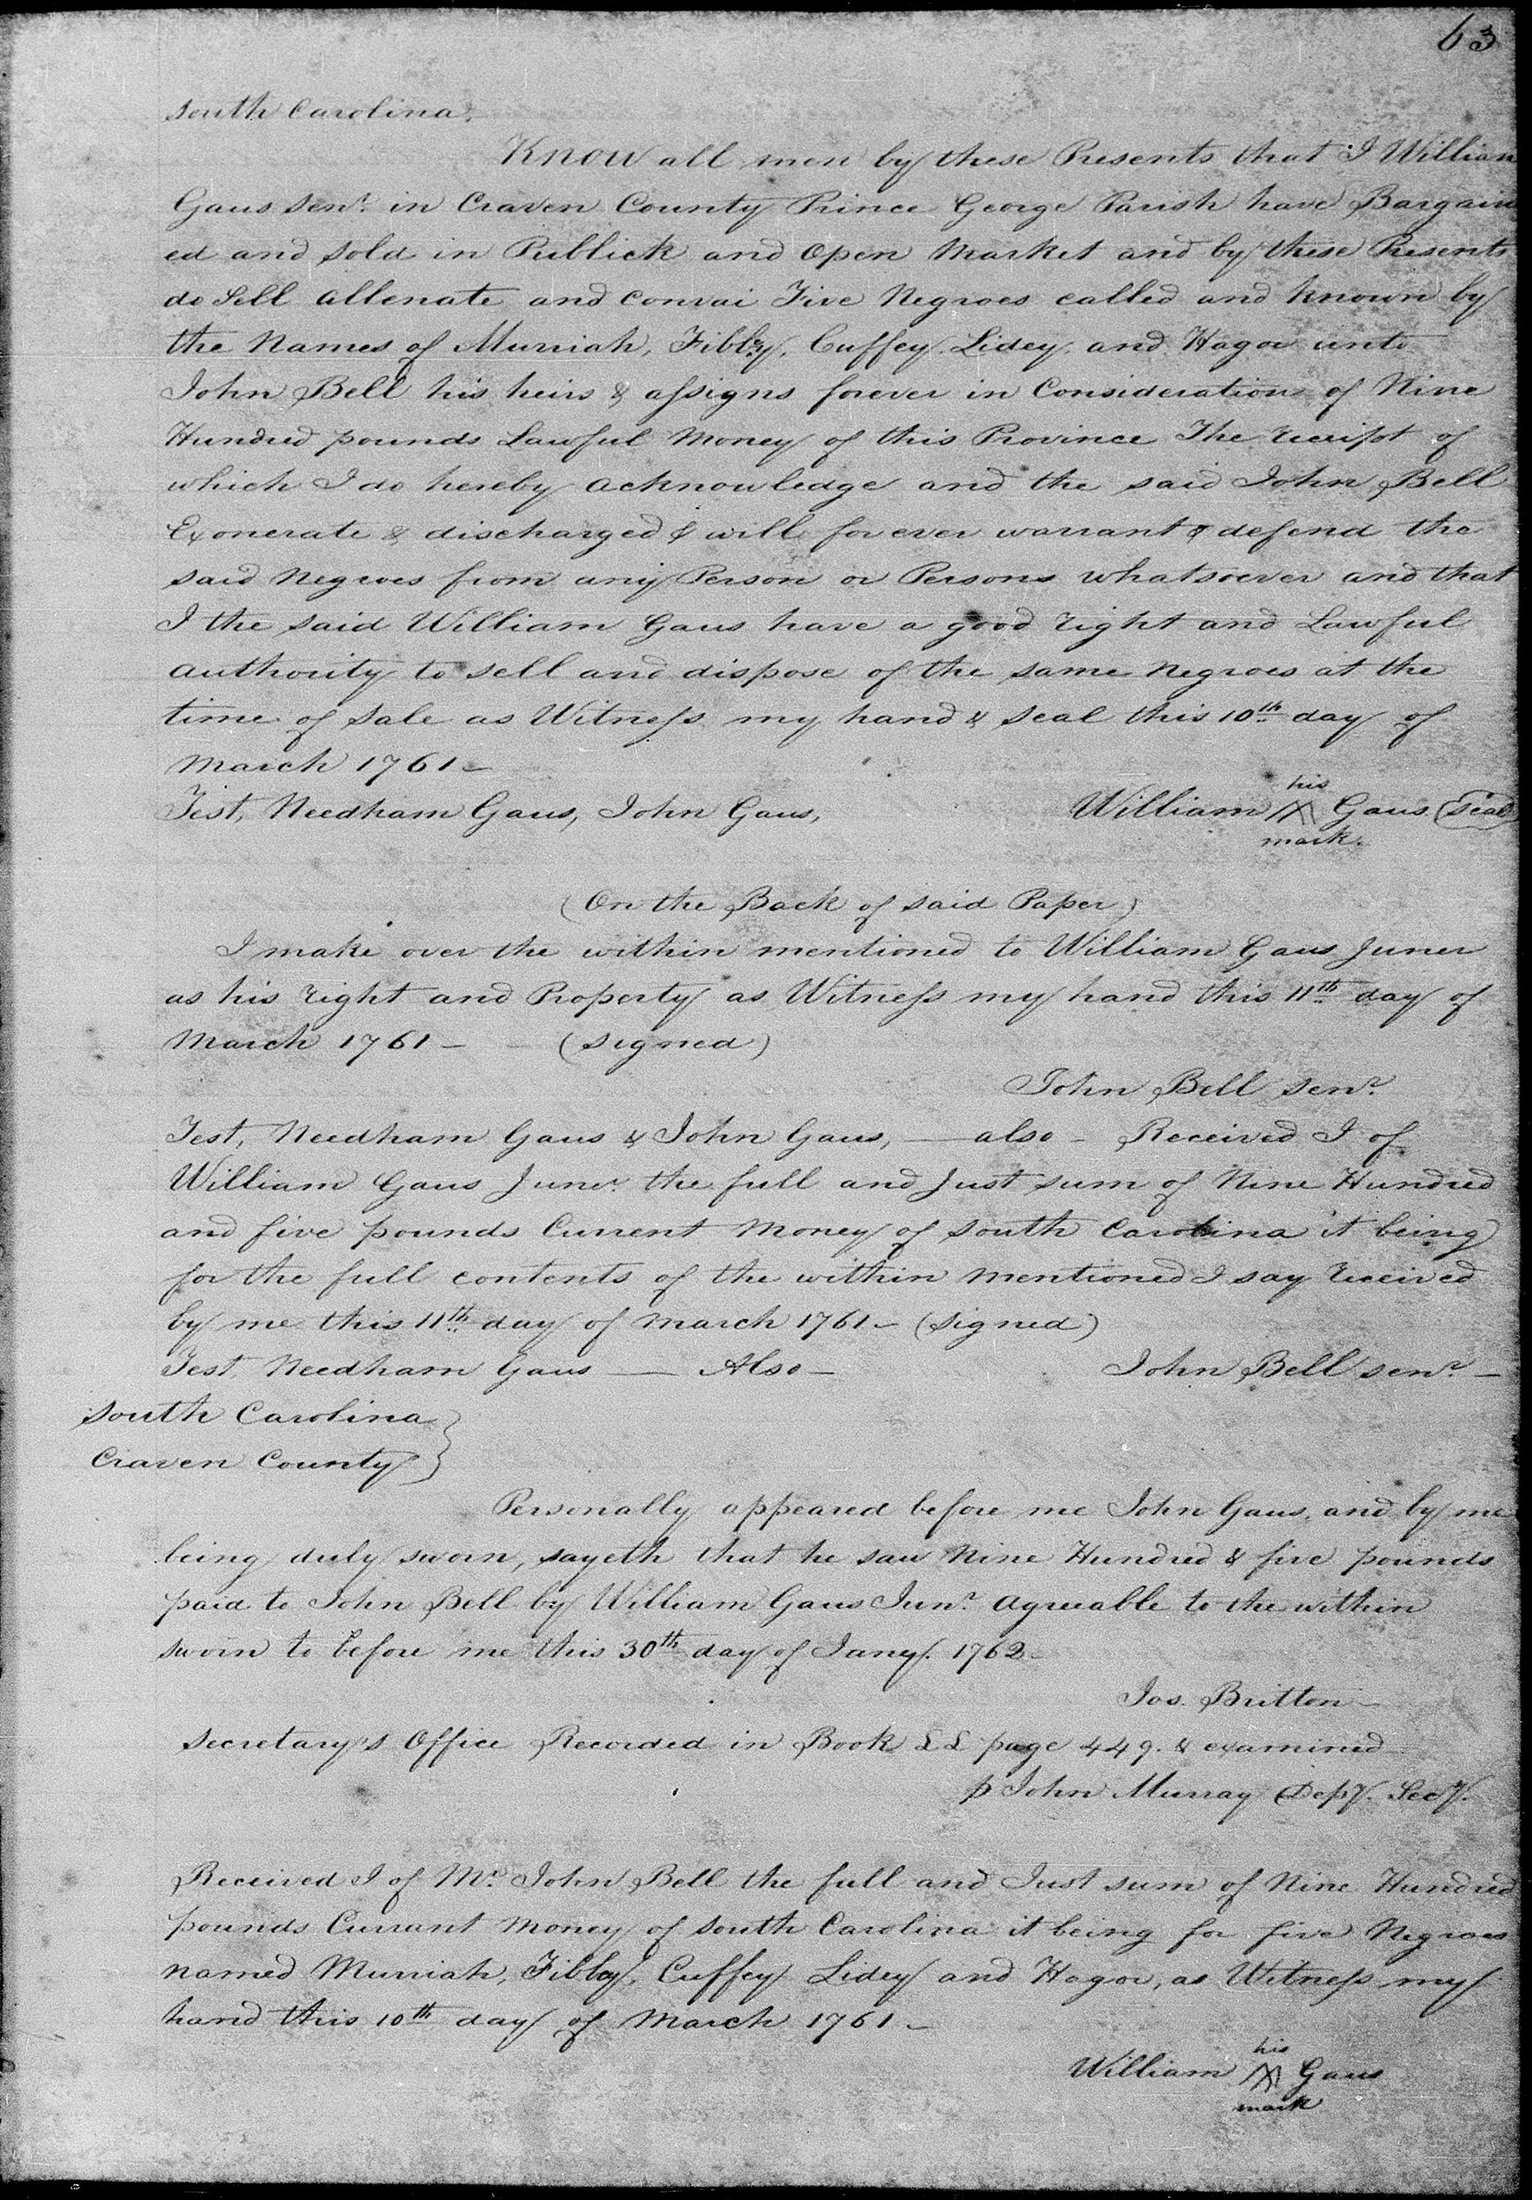 63
South Carolina.
Know all men by these Presents that I William
Gaus Senr. in Craven County Prince George Parish have Bargain
ed and Sold in Publick and Open Market and by these Presents
do Sell allenate and convai Five Negroes called and known by
the Names of Murriah, Fibby, Cuffey, Lidey, and Hagor unto
John Bell his heirs & assigns forever in Consideration of Nine
Hundred pounds Lawful Money of this Province The receipt of
which I do hereby acknowledge and the said John Bell
Exonerate & discharged & will for ever warrant & defend the
said Negroes from any Person or Persons whatsoever and that
I the said William Gaus have a good right and Lawful
authority to sell and dispose of the same Negroes at the
time of sale as Witness my hand & seal this 10th day of
March 1761 -
his
Test, Needham Gaus, John Gaus, William X Gaus (Seal)
mark.
(On the Back of said Paper)
I make over the within mentioned to William Gaus Juner
as his right and Property as Witness my hand this 11th day of
March 1761 - - (signed)
John Bell senr.
Test, Needham Gaus & John Gaus, — also - Received I of
William Gaus Junr. the full and Just sum of Nine Hundred
and five pounds Current Money of South Carolina it being
for the full contents of the within mentioned I say received
by me this 11th day of March 1761 - (signed)
Test Needham Gaus — Also - John Bell senr. -
South Carolina }
Craven County }
Personally appeared before me John Gaus, and by me
being duly sworn, sayeth that he saw Nine Hundred & five pounds
paid to John Bell by William Gaus Junr. agreeable to the within
sworn to before me this 30th day of Jany. 1762 -
Jos. Britton -
Secretary's Office Recorded in Book LL page 449. & examined -
p John Murray Depy. Secy.
Received I of Mr. John Bell the full and Just sum of Nine Hundred
pounds Currant Money of South Carolina it being for five Negroes
named Murriah, Fibby, Cuffey Lidey and Hagor, as Witness my
hand this 10th day of March 1761 -
his
William X Gaus
mark